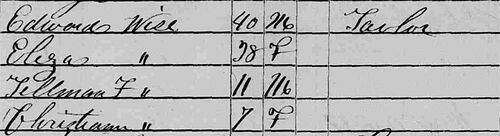 Edwards Wise 40 M Taylor
Eliza " 38 F
Tellman F " 11 M
Christiann " 7 F